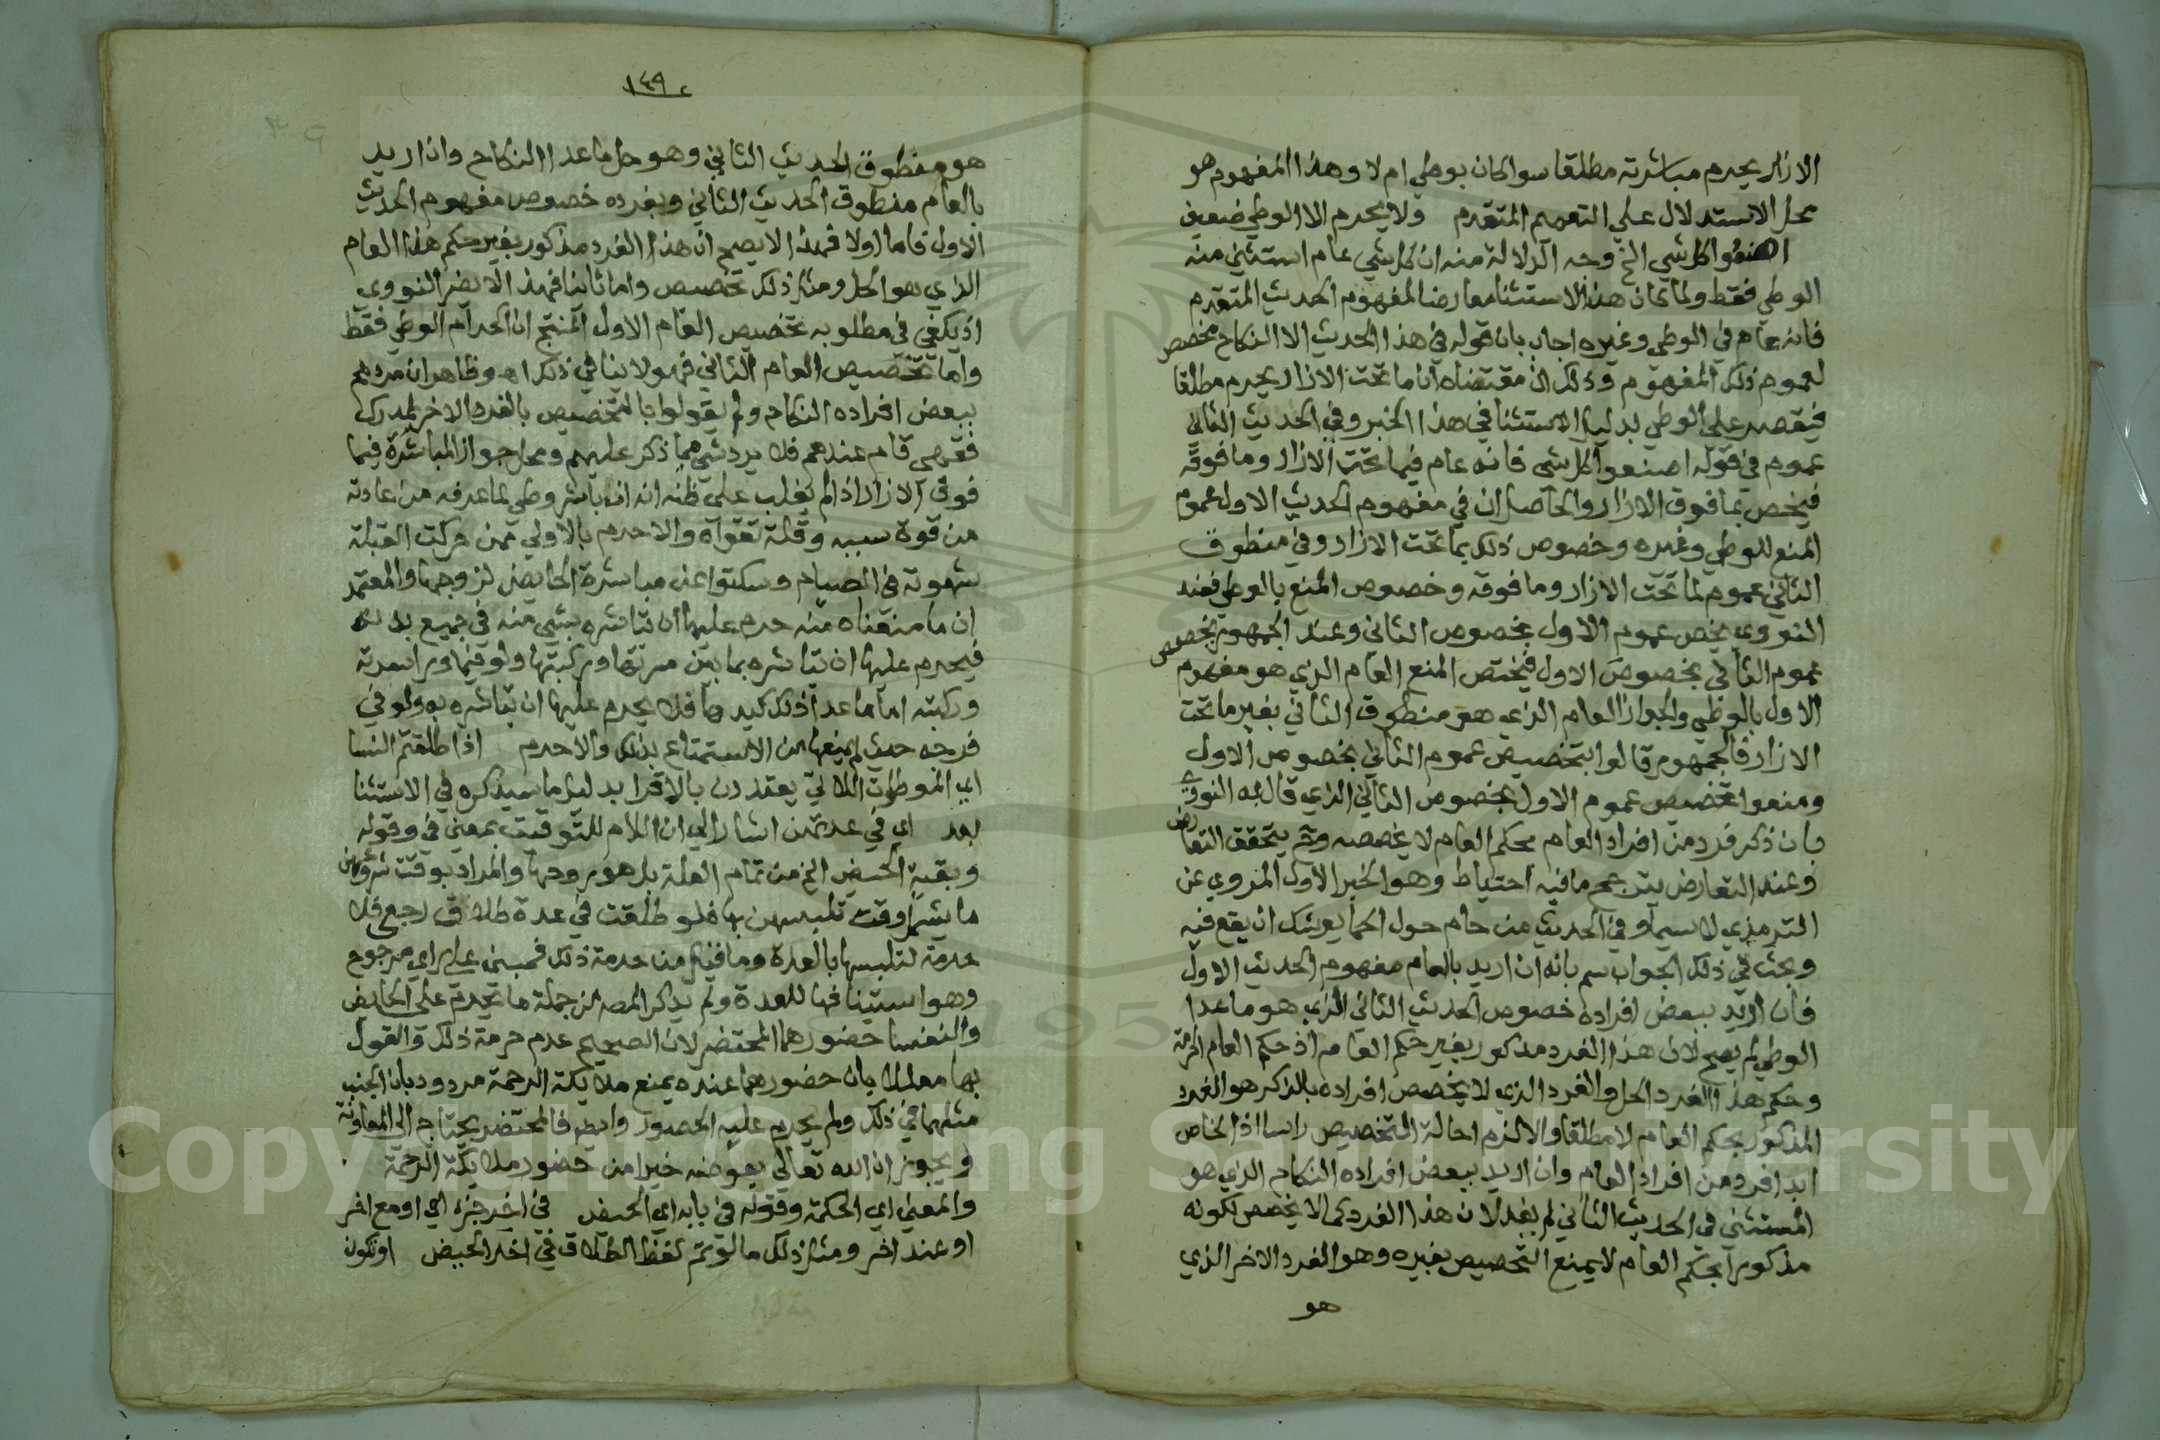 الازار يحرم مباشرته مطلقا سوا كان بوطي ام لا وهذا المفهوم هو
محل الاستدلال علي التعميم المتقدم ولا يحرم الا الوطي ضعيف
اصنعوا كل شي الخ وجه الدلالة منه ان كل شي عام استثني منه
الوطي فقط ولما كان هذا الاستثنا معارضا لمفهوم الحديث المتقدم
فانه عام في الوطي وغيره اجاب بان قوله في هذا الحديث الا النكاح مخصص
لعموم ذلك المفهوم وذلك ان مقتضاه ان ما تحت الازار يحرم مطلقا
فيقصر علي الوطي بدليل الاستثنا في هذا الخبر وفي الحديث الثاني
عموم في قوله اصنعوا كل شي فانه عام فيما تحت الازار وما فوقه
فيخص بما فوق الازار والحاصل ان في مفهوم الحديث الاول عموم
المنع للوطي وغيره وخصوص ذلك بما تحت الازار وفي منطوق
الثاني عموم لما تحت الازار وما فوقه وخصوص المنع بالوطي فعند
النووي يخص عموم الاول بخصوص الثاني وعند الجمهور يخصص
عموم الثاني بخصوص الاول فيختص المنع العام الذي هو مفهوم
الاول بالوطي والجواز العام الذي هو منطوق الثاني بغير ما تحت
الازار فالجمهور قالوا بتخصيص عموم الثاني بخصوص الاول
ومنعوا تخصيص عموم الاول بخصوص الثاني الذي قال به النووي
بان ذكر فرد من افراد العام بحكم العام لا يخصصه وثم يتحقق التعارض
وعند التعارض يترجح ما فيه احتياط وهو الخبر الاول المروي عن
الترمذي لا سيما وفي الحديث من حام حول الحما يوشك ان يقع فيه
وبحث في ذلك الجواب سم بانه ان اريد بالعام مفهوم الحديث الاول
فان اريد ببعض افراده خصوص الحديث الثاني الذي هو ما عدا
الوطي لم يصح لان هذا الفرد مذكور بغير حكم العام اذ حكم العام الحرمة
وحكم هذا الفرد الحل والفرد الذي لا يخصص افراده بالذكر هو الفرد
المذكور بحكم العام لا مطلقا والا لزم احالة التخصيص راسا اذ الخاص
ابدا فرد من افراد العام وان اريد ببعض افراده النكاح الذي هو
المستثني في الحديث الثاني لم يفد لان هذا الفرد كما لا يخصص لكونه
مذكورا بحكم العام لا يمنع التخصيص بغيره وهو الفرد الاخر الذي
هو
١٤٩
هو منطوق الحديث الثاني وهو حل ما عدا النكاح وان اريد
بالعام منطوق الحديث الثاني وبفرده خصوص مفهوم الحديث
الاول فاما اولا فهذا لا يصح ان هذا الفرد مذكور بغير حكم هذا العام
الذي هو الحل ومثل ذلك تخصيص واما ثانيا فهذا لا يضر النووي
اذ يكفي في مطلوبه تخصيص العام الاول المنتج ان الحرام الوطي فقط
واما تخصيص العام الثاني فهو لا ينافي ذلك اه وظاهر ان مردهم
ببعض افراده النكاح ولم يقولوا بالتخصيص بالفرد الاخر لمدرك
فقهي قام عندهم فلا يرد شي مما ذكر عليهم ومحل جواز المباشرة فيما
فوق الازار اذا لم يغلب علي ظنه انه ان باشر وطي لما عرفه من عادته
من قوة شبه وقلة تقواه والا حرم بالاولي ممن حركت القبلة
شهوته في الصيام وسكتوا عن مباشرة الحايض لزوجها والمعتمد
ان ما منعناه منه حرم عليها ان تباشره بشي منه في جميع بدنه
فيحرم عليها ان تباشره بما بين سرتها وركبتها ولو فيما ورا سرته
وركبته اما ما عدا ذلك كيدها فلا يحرم عليها ان تباشره به ولو في
فرجه حيث لم يمنعها من الاستمتاع بذلك والا حرم اذا طلقتم النسا
اي الموطوات اللاتي يعتددن بالاقرا بدليل ما سيذكره في الاستثنا
بعد اي في عدتهن اشار الي ان اللام للتوقيت بمعني في وقوله
وبقية الحيض الخ من تمام العلة بل هو روحها والمراد بوقت شروعهن
ما يشمل وقت تلبسهن بها فلو طلقت في عدة طلاق رجعي فلا
حرمة لتلبسها بالعدة وما قيل من حرمة ذلك فمبني علي راي مرجوح
وهو استينافها للعدة ولم يذكر المص من جملة ما يحرم علي الحايض
والنفسا حضورهما المحتضر لان الصحيح عدم حرمة ذلك والقول
بها معللا بان حضورهما عنده يمنع ملايكة الرحمة مردود بان الجنب
مثلهما في ذلك ولم يحرم عليه الحضور وايضا فالمحتضر يحتاج الي المعاونة
ويجوز ان الله تعالي يعوضه خيرا من حضور ملايكة الرحمة
والمعني اي الحكمة وقوله في بابه اي الحيض في اخر جزء اي او مع اخر
او عند اخر ومثل ذلك ما لو تم لفظ الطلاق في اخر الحيض او تكون
Copyright © King Saud University
1957